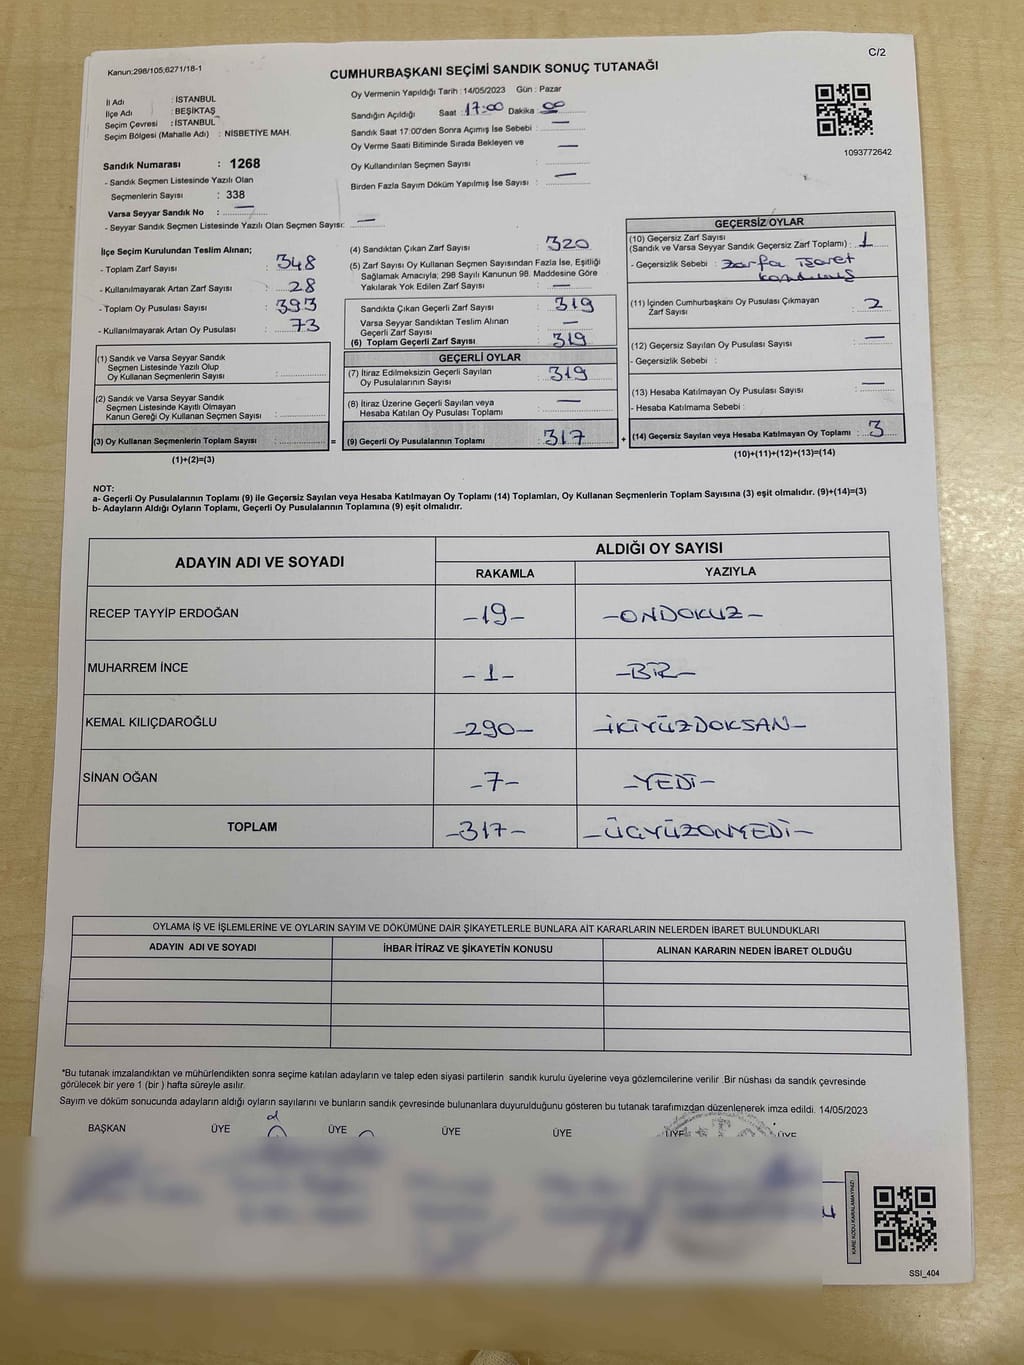 C/2
Kanun;298/105;6271/18-1
CUMHURBAŞKANI SEÇİMİ SANDIK SONUÇ TUTANAĞI
İl Adı : İSTANBUL
İlçe Adı : BEŞİKTAŞ
Seçim Çevresi : İSTANBUL
Seçim Bölgesi (Mahalle Adı) : NİSBETİYE MAH.
Sandık Numarası : 1268
- Sandık Seçmen Listesinde Yazılı Olan
Seçmenlerin Sayısı : 338
Varsa Seyyar Sandık No : —
- Seyyar Sandık Seçmen Listesinde Yazılı Olan Seçmen Sayısı: —
Oy Vermenin Yapıldığı Tarih : 14/05/2023 Gün : Pazar
Sandığın Açıldığı Saat : 17:00 Dakika : 00
Sandık Saat 17:00'den Sonra Açımış İse Sebebi : —
Oy Verme Saati Bitiminde Sırada Bekleyen ve —
Oy Kullandırılan Seçmen Sayısı :
Birden Fazla Sayım Döküm Yapılmış İse Sayısı : —
1093772642
İlçe Seçim Kurulundan Teslim Alınan;
- Toplam Zarf Sayısı : 348
- Kullanılmayarak Artan Zarf Sayısı : 28
- Toplam Oy Pusulası : 393
- Kullanılmayarak Artan Oy Pusulası : 73
(1) Sandık ve Varsa Seyyar Sandık
Seçmen Listesinde Yazılı Olup
Oy Kullanan Seçmenlerin Sayısı :
(2) Sandık ve Varsa Seyyar Sandık
Seçmen Listesinde Kayıtlı Olmayan
Kanun Gereği Oy Kullanan Seçmen Sayısı :
(3) Oy Kullanan Seçmenlerin Toplam Sayısı : =
(1)+(2)=(3)
(4) Sandıktan Çıkan Zarf Sayısı : 320
(5) Zarf Sayısı Oy Kullanan Seçmen Sayısından Fazla İse, Eşitliği
Sağlamak Amacıyla; 298 Sayılı Kanunun 98. Maddesine Göre
Yakılarak Yok Edilen Zarf Sayısı : —
Sandıkta Çıkan Geçerli Zarf Sayısı : 319
Varsa Seyyar Sandıktan Teslim Alınan
Geçerli Zarf Sayısı : —
(6) Toplam Geçerli Zarf Sayısı : 319
GEÇERLİ OYLAR
(7) İtiraz Edilmeksizin Geçerli Sayılan
Oy Pusulalarının Sayısı : 319
(8) İtiraz Üzerine Geçerli Sayılan veya
Hesaba Katılan Oy Pusulası Toplamı : —
(9) Geçerli Oy Pusulalarının Toplamı : 317 +
GEÇERSİZ OYLAR
(10) Geçersiz Zarf Sayısı
(Sandık ve Varsa Seyyar Sandık Geçersiz Zarf Toplamı) : 1
- Geçersizlik Sebebi : Zarfa işaret
konulmuş
(11) İçinden Cumhurbaşkanı Oy Pusulası Çıkmayan
Zarf Sayısı : 2
(12) Geçersiz Sayılan Oy Pusulası Sayısı : —
- Geçersizlik Sebebi :
(13) Hesaba Katılmayan Oy Pusulası Sayısı : —
- Hesaba Katılmama Sebebi :
(14) Geçersiz Sayılan veya Hesaba Katılmayan Oy Toplamı : 3
(10)+(11)+(12)+(13)=(14)
NOT:
a- Geçerli Oy Pusulalarının Toplamı (9) ile Geçersiz Sayılan veya Hesaba Katılmayan Oy Toplamı (14) Toplamları, Oy Kullanan Seçmenlerin Toplam Sayısına (3) eşit olmalıdır. (9)+(14)=(3)
b- Adayların Aldığı Oyların Toplamı, Geçerli Oy Pusulalarının Toplamına (9) eşit olmalıdır.
ADAYIN ADI VE SOYADI
ALDIĞI OY SAYISI
RAKAMLA YAZIYLA
RECEP TAYYİP ERDOĞAN -19- -ONDOKUZ-
MUHARREM İNCE -1- -BİR-
KEMAL KILIÇDAROĞLU -290- -İKİYÜZDOKSAN-
SİNAN OĞAN -7- -YEDİ-
TOPLAM -317- -ÜÇYÜZONYEDİ-
OYLAMA İŞ VE İŞLEMLERİNE VE OYLARIN SAYIM VE DÖKÜMÜNE DAİR ŞİKAYETLERLE BUNLARA AİT KARARLARIN NELERDEN İBARET BULUNDUKLARI
ADAYIN ADI VE SOYADI İHBAR İTİRAZ VE ŞİKAYETİN KONUSU ALINAN KARARIN NEDEN İBARET OLDUĞU
*Bu tutanak imzalandıktan ve mühürlendikten sonra seçime katılan adayların ve talep eden siyasi partilerin sandık kurulu üyelerine veya gözlemcilerine verilir .Bir nüshası da sandık çevresinde
görülecek bir yere 1 (bir ) hafta süreyle asılır.
Sayım ve döküm sonucunda adayların aldığı oyların sayılarını ve bunların sandık çevresinde bulunanlara duyurulduğunu gösteren bu tutanak tarafımızdan düzenlenerek imza edildi. 14/05/2023
BAŞKAN ÜYE ÜYE ÜYE ÜYE ÜYE ÜYE
KARE KODU KARALAMAYINIZ!
SSI_404